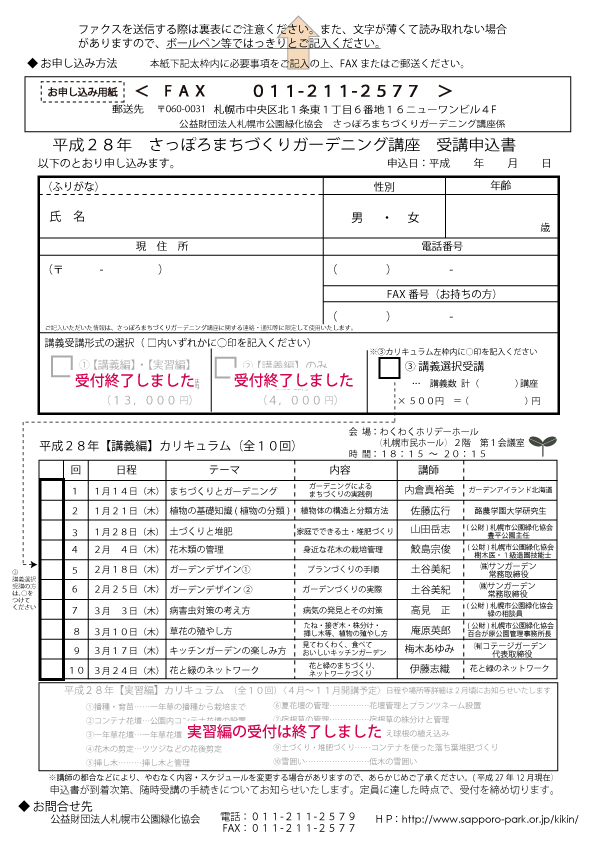 ファクスを送信する際は裏表にご注意ください。また、文字が薄くて読み取れない場合
がありますので、ボールペン等ではっきりとご記入ください。
◆お申し込み方法　本紙下記太枠内に必要事項をご記入の上、FAX またはご郵送ください。
お申し込み用紙 ＜ ＦＡＸ　０１１-２１１-２５７７ ＞
郵送先　〒060-0031 札幌市中央区北１条東１丁目６番地１６ニューワンビル４Ｆ
公益財団法人札幌市公園緑化協会　さっぽろまちづくりガーデニング講座係
平成２８年　さっぽろまちづくりガーデニング講座　受講申込書
以下のとおり申し込みます。　申込日：平成　年　月　日
（ふりがな）　性別　年齢
氏　名　男　・　女　歳
現　住　所　電話番号
（〒　-　）　（　）　-
FAX 番号（お持ちの方）
（　）　-
ご記入いただいた情報は、さっぽろまちづくりガーデニング講座に関する連絡・通知等に限定して使用いたします。
講義受講形式の選択（ □内いずれかに○印を記入ください）　※③カリキュラム左枠内に○印を記入ください
①【講義編】・【実習編】　②【講義編】のみ　③ 講義選択受講
受付終了しました　受付終了しました　… 講義数 計（　）講座
（１３，０００円）　（４，０００円）　×５００円　＝（　）円
会 場：わくわくホリデーホール
（札幌市民ホール）２階　第１会議室
平成２８年【講義編】カリキュラム（全１０回）　時 間：１８：１５ ～ ２０：１５
回　日程　テーマ　内容　講師
1　１月１４日（木）　まちづくりとガーデニング　ガーデニングによるまちづくりの実践例　内倉真裕美　ガーデンアイランド北海道
2　１月２１日（木）　植物の基礎知識 ( 植物の分類 )　植物体の構造と分類方法　佐藤広行　酪農学園大学研究生
3　１月２８日（木）　土づくりと堆肥　家庭でできる土・堆肥づくり　山田岳志　( 公財 ) 札幌市公園緑化協会 豊平公園主任
4　２月　４日（木）　花木類の管理　身近な花木の栽培管理　鮫島宗俊　( 公財 ) 札幌市公園緑化協会 樹木医・１級造園技能士
5　２月１８日（木）　ガーデンデザイン①　プランづくりの手順　土谷美紀　㈱サンガーデン 常務取締役
6　２月２５日（木）　ガーデンデザイン ②　ガーデンづくりの実際　土谷美紀　㈱サンガーデン 常務取締役
7　３月　３日（木）　病害虫対策の考え方　病気の発見とその対策　高見　正　( 公財 ) 札幌市公園緑化協会 緑の相談員
8　３月１０日（木）　草花の殖やし方　たね・接ぎ木・株分け・挿し木等、植物の殖やし方　庵原英郎　( 公財 ) 札幌市公園緑化協会 百合が原公園管理事務所長
9　３月１７日（木）　キッチンガーデンの楽しみ方　見てわくわく、食べておいしいキッチンガーデン　梅木あゆみ　㈲コテージガーデン 代表取締役
10　３月２４日（木）　花と緑のネットワーク　花と緑のまちづくり、ネットワークづくり　伊藤志織　花と緑のネットワーク
③
講義選択
受講の方
は、○を
つけて
ください
平成２８年【実習編】カリキュラム　（全１０回）（４月～１１月開講予定）日程や場所等詳細は２月頃にお知らせいたします
①播種・育苗……一年草の播種から栽培まで　⑥夏花壇の管理……………花壇管理とプランツネーム設置
②コンテナ花壇…公園内コンテナ花壇の設置　⑦宿根草の管理……………宿根草の株分けと管理
③一年草花壇…一年草花壇　え球根の植え込み
実習編の受付は終了しました
④花木の剪定…ツツジなどの花後剪定　⑨土づくり・堆肥づくり……コンテナを使った落ち葉堆肥づくり
⑤挿し木………挿し木と管理　⑩雪囲い……………………低木の雪囲い
※講師の都合などにより、やむなく内容・スケジュールを変更する場合がありますので、あらかじめご了承ください。( 平成 27 年 12 月現在）
申込書が到着次第、随時受講の手続きについてお知らせいたします。定員に達した時点で、受付を締め切ります。
◆お問合せ先
公益財団法人札幌市公園緑化協会　電話：０１１-２１１-２５７９　ＨＰ：http://www.sapporo-park.or.jp/kikin/
FAX：０１１-２１１-２５７７